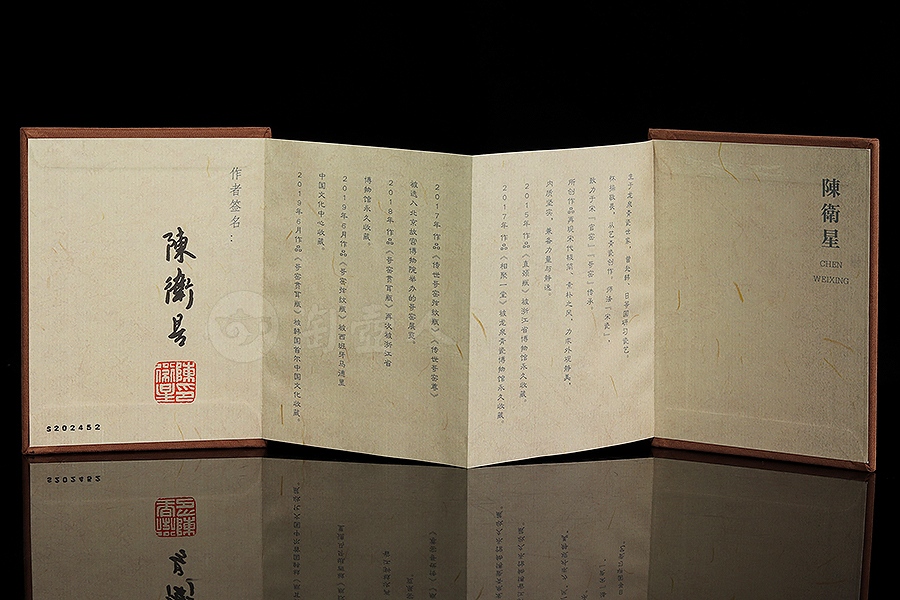 陳衛星
CHEN
WEIXING
生于龙泉青瓷世家，曾赴韩、日等国研习瓷艺。
怀揣敬畏，从艺青瓷创作，师法「宋瓷」，
致力于宋「官窑」「哥窑」传承。
所创作品再现宋代极简、素朴之风，力求外观静美，
内质坚实，兼备力量与静逸。
2015年作品《直颈瓶》被浙江省博物馆永久收藏。
2017年作品《相聚一堂》被龙泉青瓷博物馆永久收藏。
2017年作品《传世哥窑弦纹瓶》《传世哥窑尊》
被选入北京故宫博物院举办的哥窑展览。
2018年作品《哥窑贯耳瓶》再次被浙江省
博物馆永久收藏。
2019年6月作品《哥窑弦纹瓶》被西班牙马德里
中国文化中心收藏。
2019年6月作品《哥窑贯耳瓶》被韩国首尔中国文化收藏。
作者签名：
陳衛星
陳衛星印
S202452
陶壶